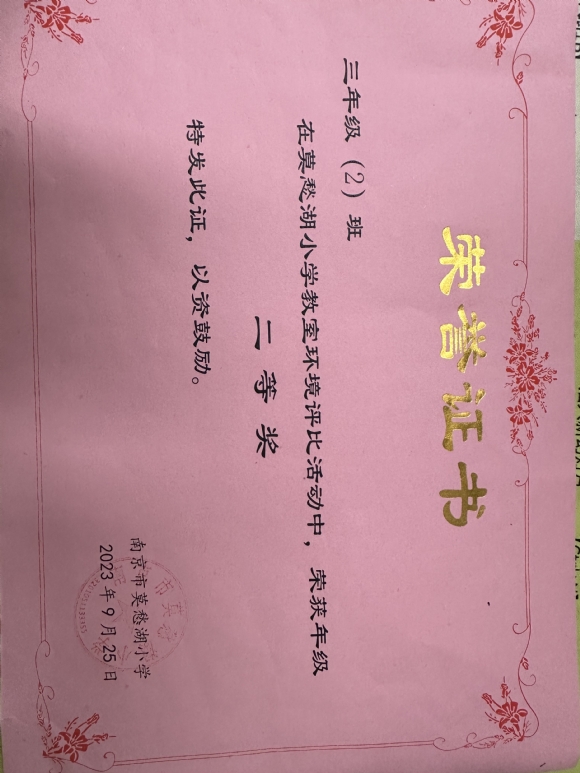 荣誉证书
三年级（2）班
在莫愁湖小学教室环境评比活动中，荣获年级
二等奖
特发此证，以资鼓励。
南京市莫愁湖小学
2023年9月25日